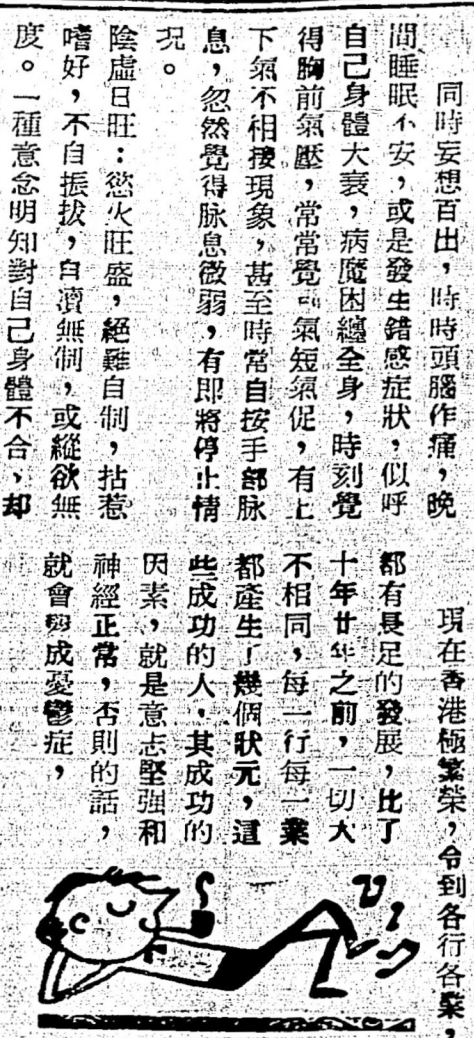 同時妄想百出，時時頭腦作痛，晚
間睡眠不安，或是發生錯感症狀，似呼
自己身體大衰，病魔困纏全身，時刻覺
得胸前氣壓，常常覺得氣短氣促，有上
下氣不相接現象，甚至時常自按手部脉
息，忽然覺得脉息微弱，有即將停止情
况。
陰虛日旺：慾火旺盛，絕難自制，拈惹
嗜好，不自振拔，自瀆無制，或縱欲無
度。一種意念明知對自己身體不合、却
現在香港極繁榮，令到各行各業，
都有長足的發展，比了
十年廿年之前，一切大
不相同，每一行每一業
都產生了幾個狀元，這
些成功的人，其成功的
因素，就是意志堅强和
神經正常，否則的話，
就會變成憂鬱症，